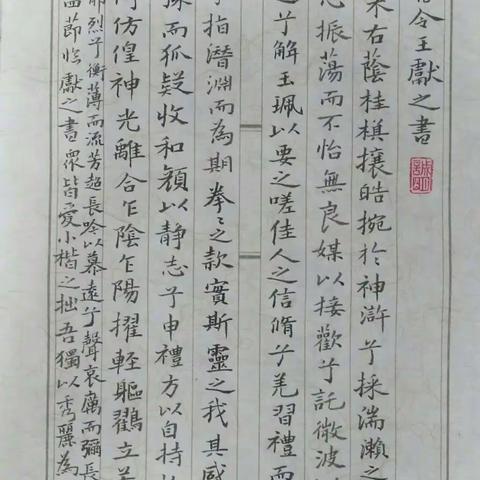 令王獻之書
右蔭桂旗攘皓捥於神滸兮採湍瀨之
振蕩而不怡無良媒以接歡兮託微波
兮解玉珮以要之嗟佳人之信脩兮羌習禮而
指潛淵而為期拳〻之款實斯靈之我其感
而狐疑收和顏以靜志兮申禮方以自持
仿偟神光離合乍陰乍陽擢輕軀鸖立
烈兮衡薄而流芳超長吟以慕遠兮聲哀厲而彌長
節臨獻之書眾皆愛小楷之拙吾獨以秀麗為